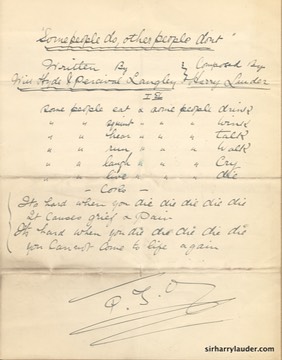 "Some people do, other people dont"
Written By & Composed By
Hyde & Percival Langley & Harry Lauder
some people eat & some people drink
" " squint " " " wink
" " hear " " " talk
" " run " " " walk
" " laugh " " " Cry
" " live " " " die
It's hard when you die die die die die
It Causes grief & Pain
It's hard when you die die die die die
you Cannot Come to life again
sirharrylauder.com